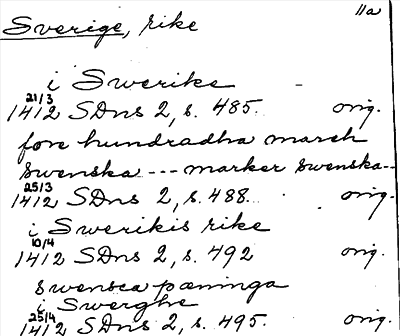 11a
Sverige, rike
i Swerike
21/3
1412 SDns 2, s. 485. orig.
fore hundradha march
swenska --- marker swenska--
25/3
1412 SDns 2, s. 488. orig.
i Swerikis rike
10/4
1412 SDns 2, s. 492 orig.
swensca pæninga
i Swerghe
25/4
1412 SDns 2, s. 495. orig.